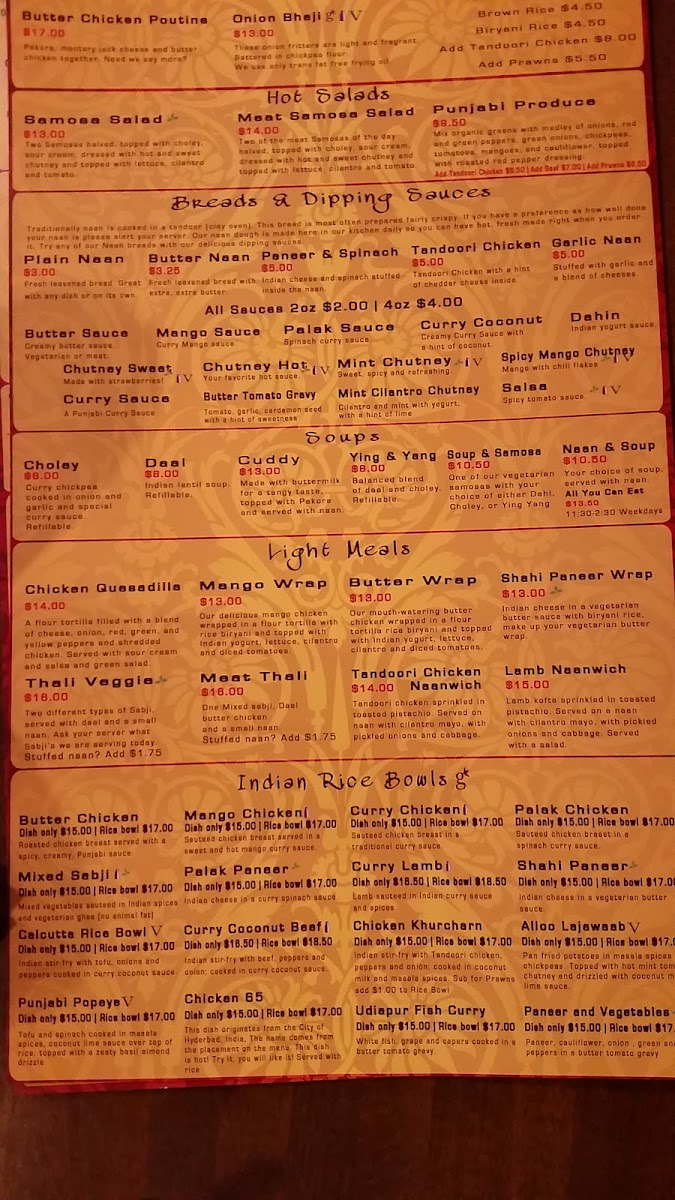 Butter Chicken Poutine
$17.00
Pakora, montery jack cheese and butter
chicken together. Need we say more?
Onion Bhaji g* f V
$13.00
These onion fritters are light and fragrant.
Battered in chickpea flour.
We use only trans fat free frying oil.
Brown Rice $4.50
Biryani Rice $4.50
Add Tandoori Chicken $8.00
Add Prawns $5.50
Hot Salads
Samosa Salad
$13.00
Two Samosas halved, topped with choley,
sour cream, dressed with hot and sweet
chutney and topped with lettuce, cilantro
and tomato.
Meat Samosa Salad
$14.00
Two of the meat Samosas of the day
halved, topped with choley, sour cream,
dressed with hot and sweet chutney and
topped with lettuce, cilantro and tomato.
Punjabi Produce
$8.50
Mix organic greens with medley of onions, red
and green peppers, green onions, chickpeas,
tomatoes, mangoes, and cauliflower, topped
with roasted red pepper dressing.
Add Tandoori Chicken $8.50 | Add Beef $7.00 | Add Prawns $5.50
Breads & Dipping Sauces
Traditionally naan is cooked in a tandoor (clay oven). This bread is most often prepared fairly crispy. If you have a preference as how well done
your naan is please alert your server. Our naan dough is made here in our kitchen daily so you can have hot, fresh made right when you order
it. Try any of our Naan breads with our delicious dipping sauces.
Plain Naan
$3.00
Fresh leavened bread. Great
with any dish or on its own.
Butter Naan
$3.25
Fresh leavened bread with
extra, extra butter.
Paneer & Spinach
$5.00
Indian cheese and spinach stuffed
inside the naan.
Tandoori Chicken
$5.00
Tandoori Chicken with a hint
of cheddar cheese inside.
Garlic Naan
$5.00
Stuffed with garlic and
a blend of cheeses.
All Sauces 2oz $2.00 | 4oz $4.00
Butter Sauce
Creamy butter sauce.
Vegetarian or meat.
Mango Sauce
Curry Mango sauce
Palak Sauce
Spinach curry sauce
Curry Coconut
Creamy Curry Sauce with
a hint of coconut
Dahin
Indian yogurt sauce.
Chutney Sweet f V
Made with strawberries!
Chutney Hot f V
Your favorite hot sauce.
Mint Chutney f V
Sweet, spicy and refreshing
Spicy Mango Chutney f V
Mango with chili flakes
Curry Sauce
A Punjabi Curry Sauce
Butter Tomato Gravy
Tomato, garlic, cardamon seed
with a hint of sweetness
Mint Cilantro Chutney
Cilantro and mint with yogurt,
with a hint of lime
Salsa f V
Spicy tomato sauce.
Soups
Choley
$8.00
Curry chickpea
cooked in onion and
garlic and special
curry sauce.
Refillable.
Daal
$8.00
Indian lentil soup.
Refillable.
Cuddy
$13.00
Made with buttermilk
for a tangy taste,
topped with Pakora
and served with naan.
Ying & Yang
$8.00
Balanced blend
of daal and choley.
Refillable.
Soup & Samosa
$10.50
One of our vegetarian
samosas with your
choice of either Dahl,
Choley, or Ying Yang
Naan & Soup
$10.50
Your choice of soup,
served with naan.
All You Can Eat
$13.50
11:30-2:30 Weekdays
Light Meals
Chicken Quesadilla
$14.00
A flour tortilla filled with a blend
of cheese, onion, red, green, and
yellow peppers and shredded
chicken. Served with sour cream
and salsa and green salad.
Mango Wrap
$13.00
Our delicious mango chicken
wrapped in a flour tortilla with
rice biryani and topped with
Indian yogurt, lettuce, cilantro
and diced tomatoes.
Butter Wrap
$13.00
Our mouth-watering butter
chicken wrapped in a flour
tortilla rice biryani and topped
with Indian yogurt, lettuce,
cilantro and diced tomatoes.
Shahi Paneer Wrap
$13.00
Indian cheese in a vegetarian
butter sauce with biryani rice,
make up your vegetarian butter
wrap.
Thali Veggie
$16.00
Two different types of Sabji,
served with daal and a small
naan. Ask your server what
Sabji's we are serving today.
Stuffed naan? Add $1.75
Meat Thali
$16.00
One Mixed sabji, Daal
butter chicken
and a small naan
Stuffed naan? Add $1.75
Tandoori Chicken
$14.00 Naanwich
Tandoori chicken sprinkled in
toasted pistachio. Served on
naan with cilantro mayo, with
pickled onions and cabbage.
Lamb Naanwich
$15.00
Lamb kofta sprinkled in toasted
pistachio. Served on a naan
with cilantro mayo, with pickled
onions and cabbage. Served
with a salad.
Indian Rice Bowls g*
Butter Chicken
Dish only $15.00 | Rice bowl $17.00
Roasted chicken breast served with a
spicy, creamy, Punjabi sauce
Mango Chicken f
Dish only $15.00 | Rice bowl $17.00
Sauteed chicken breast served in a
sweet and hot mango curry sauce.
Curry Chicken f
Dish only $15.00 | Rice bowl $17.00
Sauteed chicken breast in a
traditional curry sauce
Palak Chicken
Dish only $15.00 | Rice bowl $17.00
Sauteed chicken breast in a
spinach curry sauce.
Mixed Sabji f
Dish only $15.00 | Rice bowl $17.00
Mixed vegetables sauteed in Indian spices
and vegetarian ghee (no animal fat)
Palak Paneer
Dish only $15.00 | Rice bowl $17.00
Indian cheese in a curry spinach sauce
Curry Lamb f
Dish only $16.50 | Rice bowl $18.50
Lamb sauteed in Indian curry sauce
and spices
Shahi Paneer
Dish only $15.00 | Rice bowl $17.00
Indian cheese in a vegetarian butter
sauce.
Calcutta Rice Bowl V
Dish only $15.00 | Rice bowl $17.00
Indian stir-fry with tofu, onions and
peppers cooked in curry coconut sauce
Curry Coconut Beef f
Dish only $16.50 | Rice bowl $18.50
Indian stir-fry with beef, peppers and
onion; cooked in curry coconut sauce
Chicken Khurcharn
Dish only $15.00 | Rice bowl $17.00
Indian stir-fry with Tandoori chicken,
peppers and onion; cooked in coconut
milk and masala spices. Sub for Prawns
add $1.00 to Rice Bowl
Alloo Lajawaab V
Dish only $15.00 | Rice bowl $17.
Pan fried potatoes in masala spices
chickpeas. Topped with hot mint tom
chutney and drizzled with coconut m
lime sauce.
Punjabi Popeye V
Dish only $15.00 | Rice bowl $17.00
Tofu and spinach cooked in masala
spices, coconut lime sauce over top of
rice, topped with a zesty basil almond
drizzle
Chicken 65
Dish only $15.00 | Rice bowl $17.00
This dish originates from the City of
Hyderbad, India. The name comes from
the placement on the menu. This dish
is hot! Try it, you will like it! Served with
rice
Udiapur Fish Curry
Dish only $15.00 | Rice bowl $17.00
White fish, grape and capers cooked in a
butter tomato gravy
Paneer and Vegetables
Dish only $15.00 | Rice bowl $17.
Paneer, cauliflower, onion , green an
peppers in a butter tomato gravy